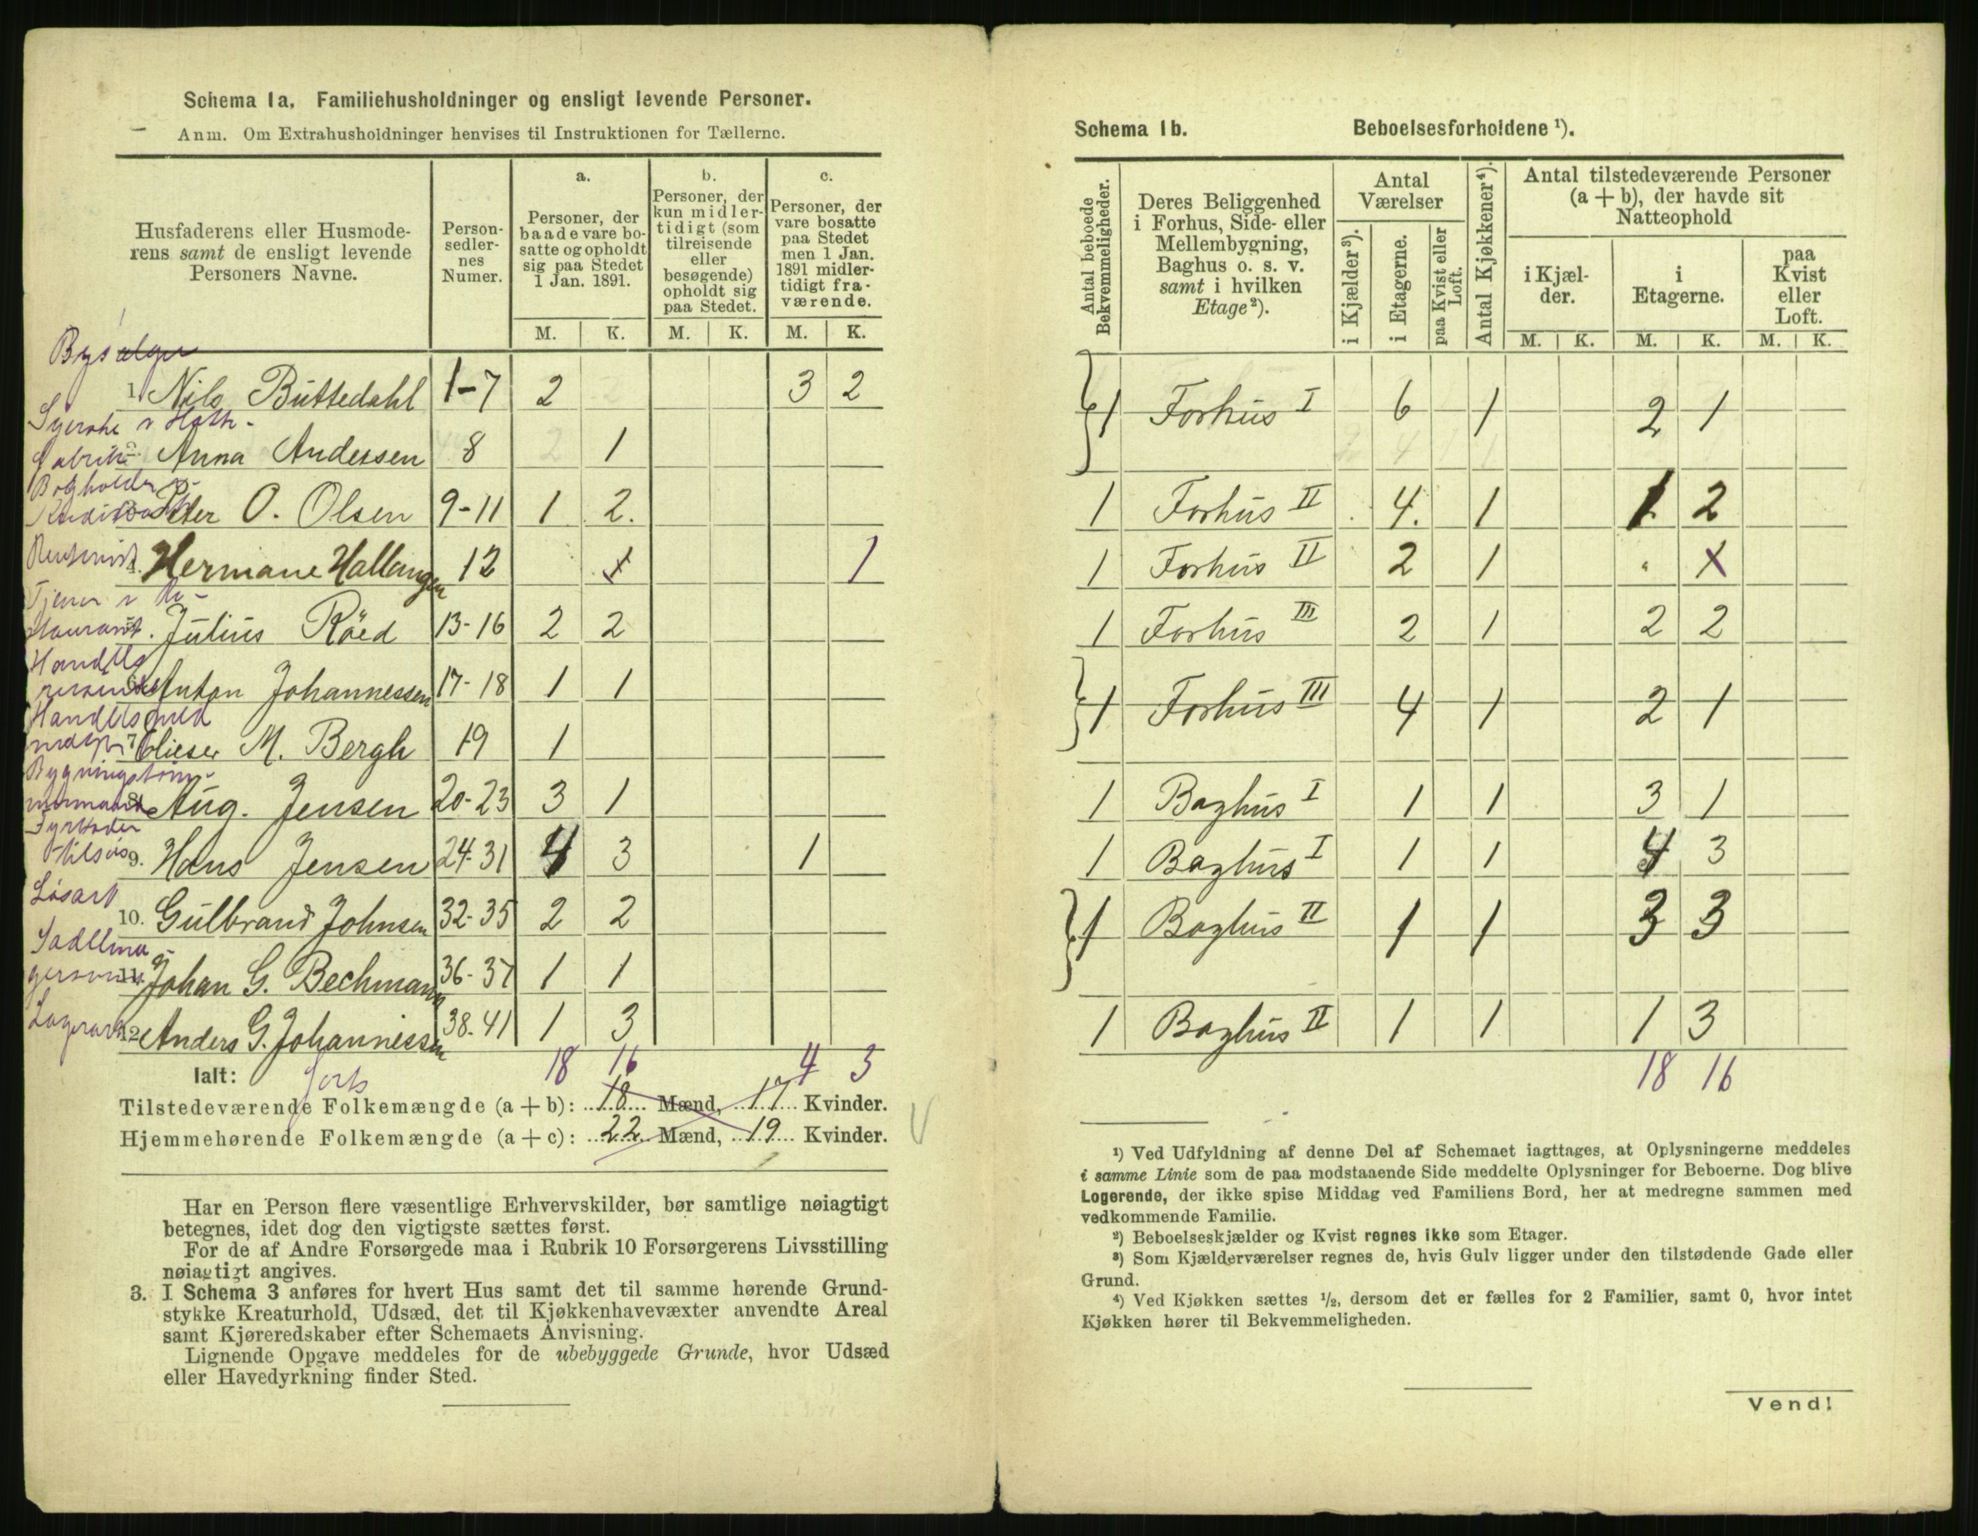 Schema 1a. Familiehusholdninger og ensligt levende Personer.
Anm. Om Extrahusholdninger henvises til Instruktionen for Tællerne.
Husfaderens eller Husmoderens samt de ensligt levende Personers Navne. | Personsedlernes Numer. | a. Personer, der baade vare bosatte og opholdt sig paa Stedet 1 Jan. 1891. | b. Personer, der kun midlertidigt (som tilreisende eller besøgende) opholdt sig paa Stedet. | c. Personer, der vare bosatte paa Stedet men 1 Jan. 1891 midlertidigt fraværende.
M. K. M. K. M. K.
1. Nils Buttedahl 1-7 2 3 2
Syerske v Hatte-
fabrik 2. Anna Andersen 8 1
Bogholder v.
3. Peter O. Olsen 9-11 1 2.
4. Hermane Hallangen 12 1 1
Tjener v Re-
staurant 5. Julius Röed 13-16 2 2
Handels
reisende 6. Anton Johannessen 17-18 1 1
Handelsmed
7. Elieser M. Bergh 19 1
Bygningstøm-
mermand 8. Aug. Jensen 20-23 3 1
Fyrbøder
9. Hans Jensen 24-31 4 3 1
Løsarb
10. Gulbrand Johnsen 32-35 2 2
Sadelma-
gersvend 11. Johan G. Bechmann 36-37 1 1
Lagerarb 12. Anders G. Johannessen 38-41 1 3
Ialt: 18 16 4 3
Tilstedeværende Folkemængde (a + b): 18 Mænd, 17 Kvinder.
Hjemmehørende Folkemængde (a + c): 22 Mænd, 19 Kvinder.
Har en Person flere væsentlige Erhvervskilder, bør samtlige nøiagtigt
betegnes, idet dog den vigtigste sættes først.
For de af Andre Forsørgede maa i Rubrik 10 Forsørgerens Livsstilling
nøiagtigt angives.
3. I Schema 3 anføres for hvert Hus samt det til samme hørende Grund-
stykke Kreaturhold, Udsæd, det til Kjøkkenhavevæxter anvendte Areal
samt Kjøreredskaber efter Schemaets Anvisning.
Lignende Opgave meddeles for de ubebyggede Grunde, hvor Udsæd
eller Havedyrkning finder Sted.
Schema 1b. Beboelsesforholdene ¹).
Antal beboede Bekvemmeligheder. | Deres Beliggenhed i Forhus, Side- eller Mellembygning, Baghus o. s. v. samt i hvilken Etage²). | Antal Værelser | i Kjælder³). | i Etagerne. | paa Kvist eller Loft. | Antal Kjøkkener⁴). | Antal tilstedeværende Personer (a + b), der havde sit Natteophold | i Kjælder. | i Etagerne. | paa Kvist eller Loft.
M. K. M. K. M. K.
1 Forhus I 6 1 2 1
1 Forhus II 4. 1 1 2
1 Forhus II 2 1 1
1 Forhus III 2 1 2 2
1 Forhus III 4 1 2 1
1 Baghus I 1 1 3 1
1 Baghus I 1 1 4 3
1 Baghus II 1 1 3 3
1 Baghus II 1 1 1 3
18 16
¹) Ved Udfyldning af denne Del af Schemaet iagttages, at Oplysningerne meddeles
i samme Linie som de paa modstaaende Side meddelte Oplysninger for Beboerne. Dog blive
Logerende, der ikke spise Middag ved Familiens Bord, her at medregne sammen med
vedkommende Familie.
²) Beboelseskjælder og Kvist regnes ikke som Etager.
³) Som Kjælderværelser regnes de, hvis Gulv ligger under den tilstødende Gade eller
Grund.
⁴) Ved Kjøkken sættes ½, dersom det er fælles for 2 Familier, samt 0, hvor intet
Kjøkken hører til Bekvemmeligheden.
Vend!